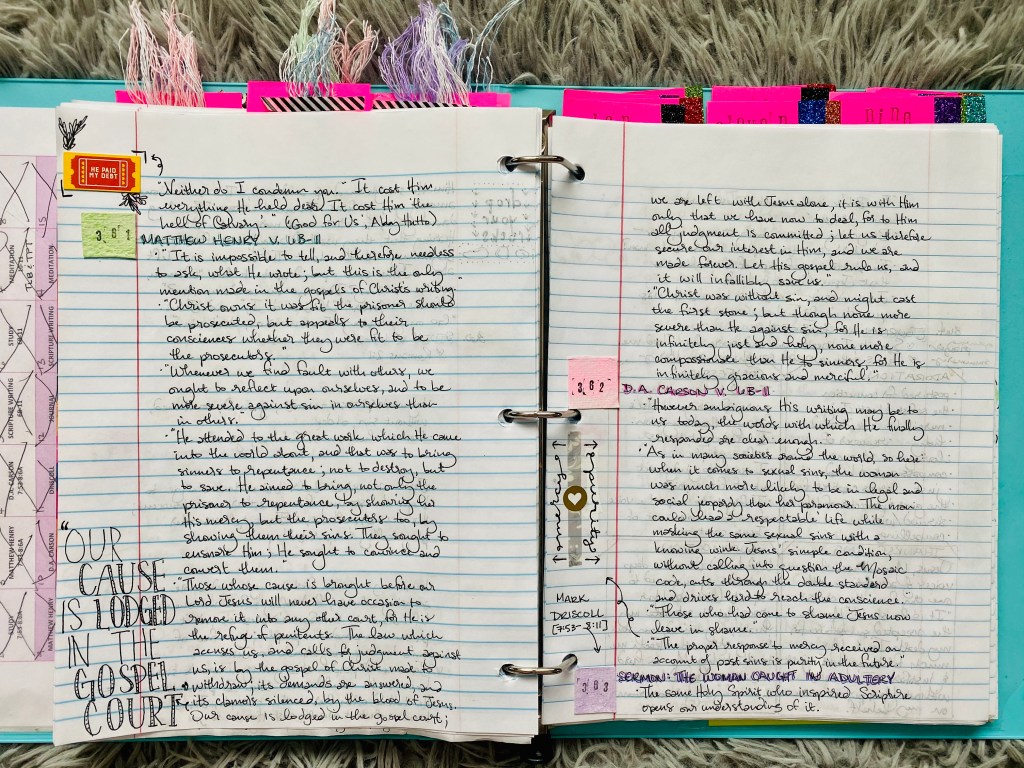 HE PAID
MY DEBT
"Neither do I condemn you." It cost Him
everything He held dear. It cost Him 'the
hell of Calvary.'" (God for Us, Abby Hutto)
361
MATTHEW HENRY V. 6B-11
"It is impossible to tell, and therefore needless
to ask, what He wrote; but this is the only
mention made in the gospels of Christ's writing."
"Christ owns it was fit the prisoner should
be prosecuted, but appeals to their
consciences whether they were fit to be
the prosecutors."
"Whenever we find fault with others, we
ought to reflect upon ourselves, and to be
more severe against sin in ourselves than
in others.
"He attended to the great work which He came
into the world about, and that was to bring
sinners to repentance; not to destroy, but
to save. He aimed to bring, not only the
prisoner to repentance, by showing her
His mercy, but the prosecutors too, by
showing them their sins. They sought to
ensnare Him; He sought to convince and
convert them."
"Those whose cause is brought before our
Lord Jesus will never have occasion to
remove it into any other court, for He is
the refuge of penitents. The law which
accuses us, and calls for judgment against
us, is by the gospel of Christ made to
withdraw; its demands are answered, and
its clamors silenced, by the blood of Jesus.
Our cause is lodged in the gospel court;
"OUR
CAUSE
IS LODGED
IN THE
GOSPEL
COURT"
MEDITATION
STUDY
SCRIPTURE WRITING
D.A. CARSON
MATTHEW HENRY
STUDY
MEDITATION
SCRIPTURE WRITING
JOURNAL
DRISCOLL
D.A. CARSON
MATTHEW HENRY
nine
we are left with Jesus alone, it is with Him
only that we have now to deal, for to Him
all judgment is committed; let us therefore
secure our interest in Him, and we are
made forever. Let His gospel rule us, and
it will infallibly save us."
"Christ was without sin, and might cast
the first stone; but though none more
severe than He against sin, for He is
infinitely just and holy, none more
compassionate than He to sinners, for He is
infinitely gracious and merciful."
362
D.A. CARSON V. 6B-11
"However ambiguous His writing may be to
us today, the words with which He finally
responded are clear enough."
"As in many societies around the world, so here:
when it comes to sexual sins, the woman
was much more likely to be in legal and
social jeopardy than her paramour. The man
could lead a 'respectable' life while
masking the same sexual sins with a
knowing wink. Jesus' simple condition,
without calling into question the Mosaic
code, cuts through the double standard
and drives hard to reach the conscience."
"Those who had come to shame Jesus now
leave in shame."
"The proper response to mercy received on
account of past sins is purity in the future."
MARK
DRISCOLL
[7:53-8:11]
363
SERMON: THE WOMAN CAUGHT IN ADULTERY
"The same Holy Spirit who inspired Scripture
opens our understanding of it.